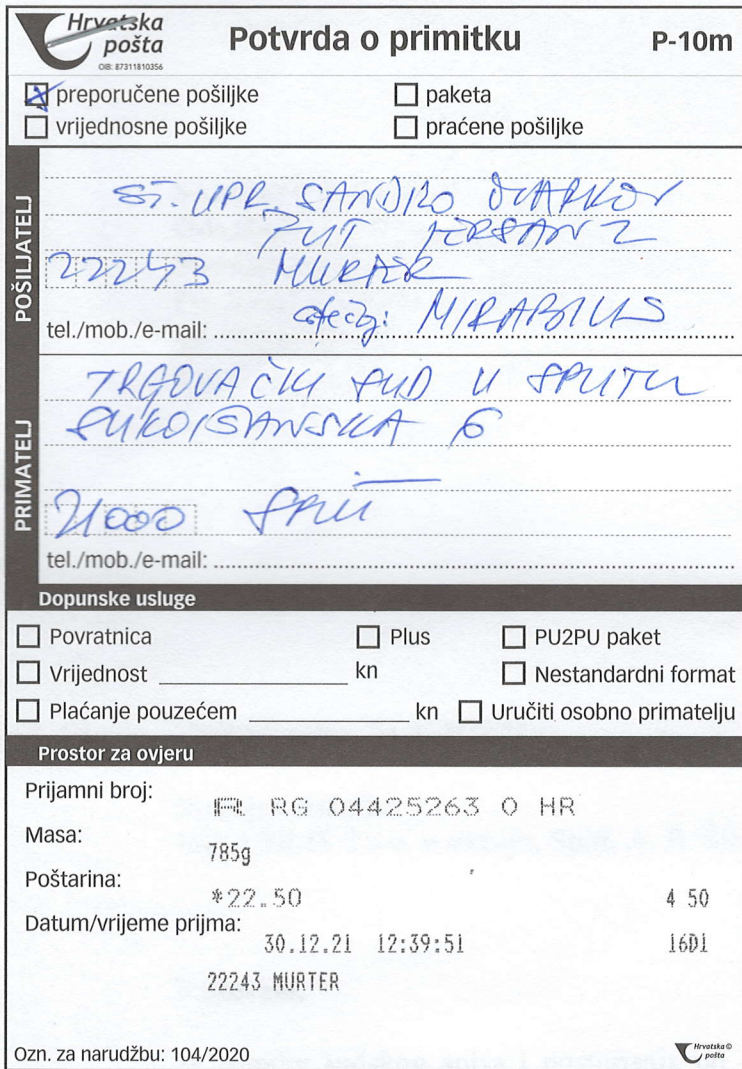 Hrvatska
pošta
OIB: 87311810356
Potvrda o primitku
P-10m
preporučene pošiljke
paketa
vrijednosne pošiljke
praćene pošiljke
POŠILJATELJ
ST. UPR. SANDRO MARKOV
PUT 2
22243 MURTER
tel./mob./e-mail: MIRABILIS
PRIMATELJ
TRGOVAČKI SUD U SPLITU
SUKOIŠANSKA 6
21000 SPLIT
tel./mob./e-mail:
Dopunske usluge
Povratnica
Plus
PU2PU paket
Vrijednost kn
Nestandardni format
Plaćanje pouzećem kn
Uručiti osobno primatelju
Prostor za ovjeru
Prijamni broj: R RG 04425263 0 HR
Masa: 785g
Poštarina: *22.50 4 50
Datum/vrijeme prijma: 30.12.21 12:39:51 16D1
22243 MURTER
Ozn. za narudžbu: 104/2020
Hrvatska
pošta